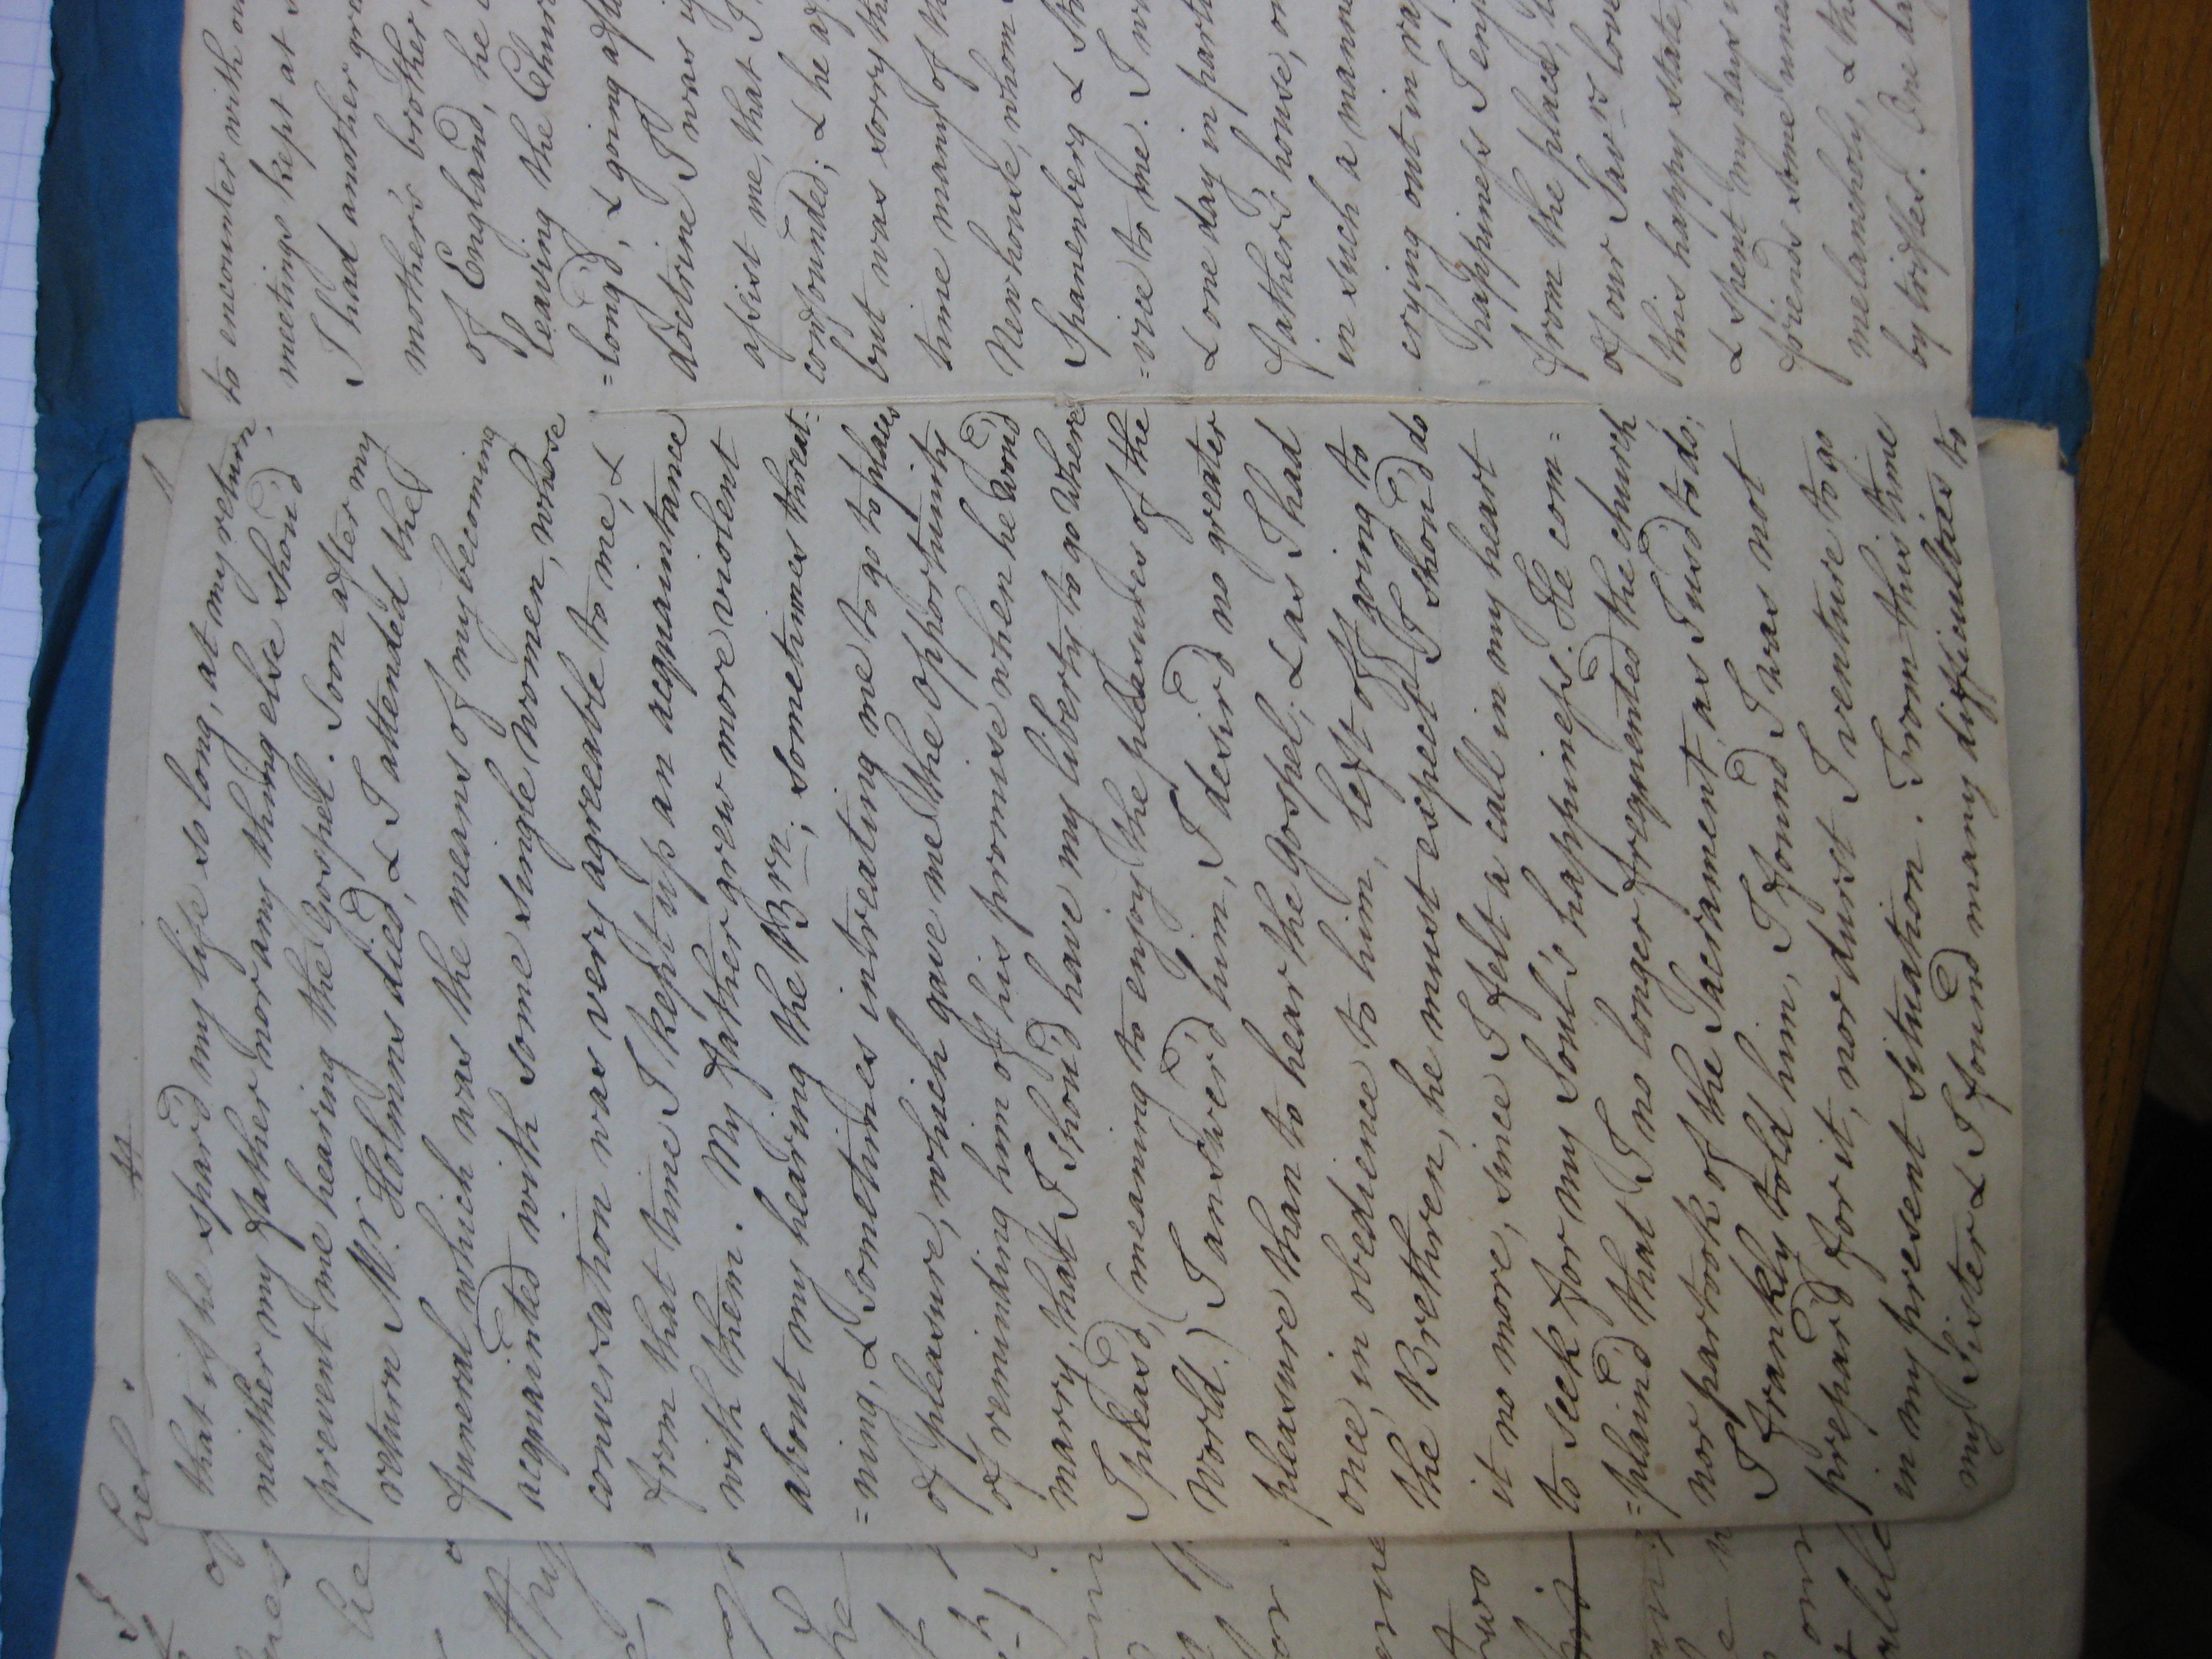 that if he spar'd my life so long, at my return,
neither my father nor any thing else shou'd
prevent me hearing the Gospel. Soon after my
return Mr. Holmns died, & I attended the
funeral, which was the means of my becoming
acquainted with some single women, whose
conversation was very agreeable to me, &
from that time I kept up an acquaintance
with them. My father grew more violent
about my hearing the Brn; sometimes threat=
=ning, & sometimes intreating me to go to places
of pleasure, which gave me the opportunity
of reminding him of his promise when he wou'd
marry, that I shou'd have my liberty to go where
I pleas'd, (meaning to enjoy the pleasures of the
world.) I answer'd him, I desir'd no greater
pleasure than to hear the Gospel; & as I had
once, in obedience to him, left off going to
the Brethren, he must expect I shou'd do
it no more, since I felt a call in my heart
to seek for my Soul's happiness. He com=
=plain'd that I no longer frequented the church,
nor partook of the Sacrament, as I us'd to do;
I frankly told him, I found I was not
prepar'd for it, nor durst I venture to go
in my present situation. From this time
my Sister & I found many difficulties to
to encounter with
meetings kept at
I had another
mother's brother,
of England, he
leaving the
=long'd, & going
doctrine I was
assist me, that I
confounded; & he
but was sorry
time many of
Newhouse, whom
Spanenberg &
=vice to me. I
& one day in
father's house,
in such a
crying out in
happiness I
from the place,
of our Savrs love
this happy state,
& spent my days
friends some
melancholy, &
by trifles. One